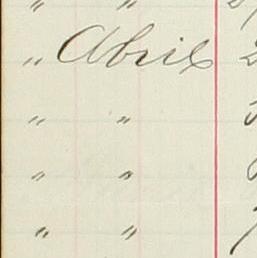 " "
" Abril 2
" "
" "
" "